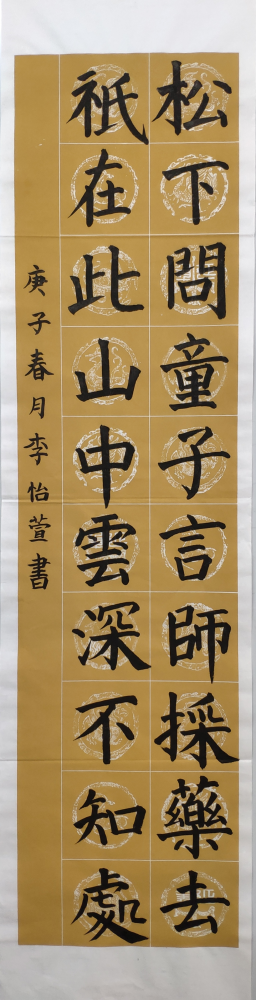 松下問童子言師採藥去
祇在此山中雲深不知處
庚子春月李怡萱書